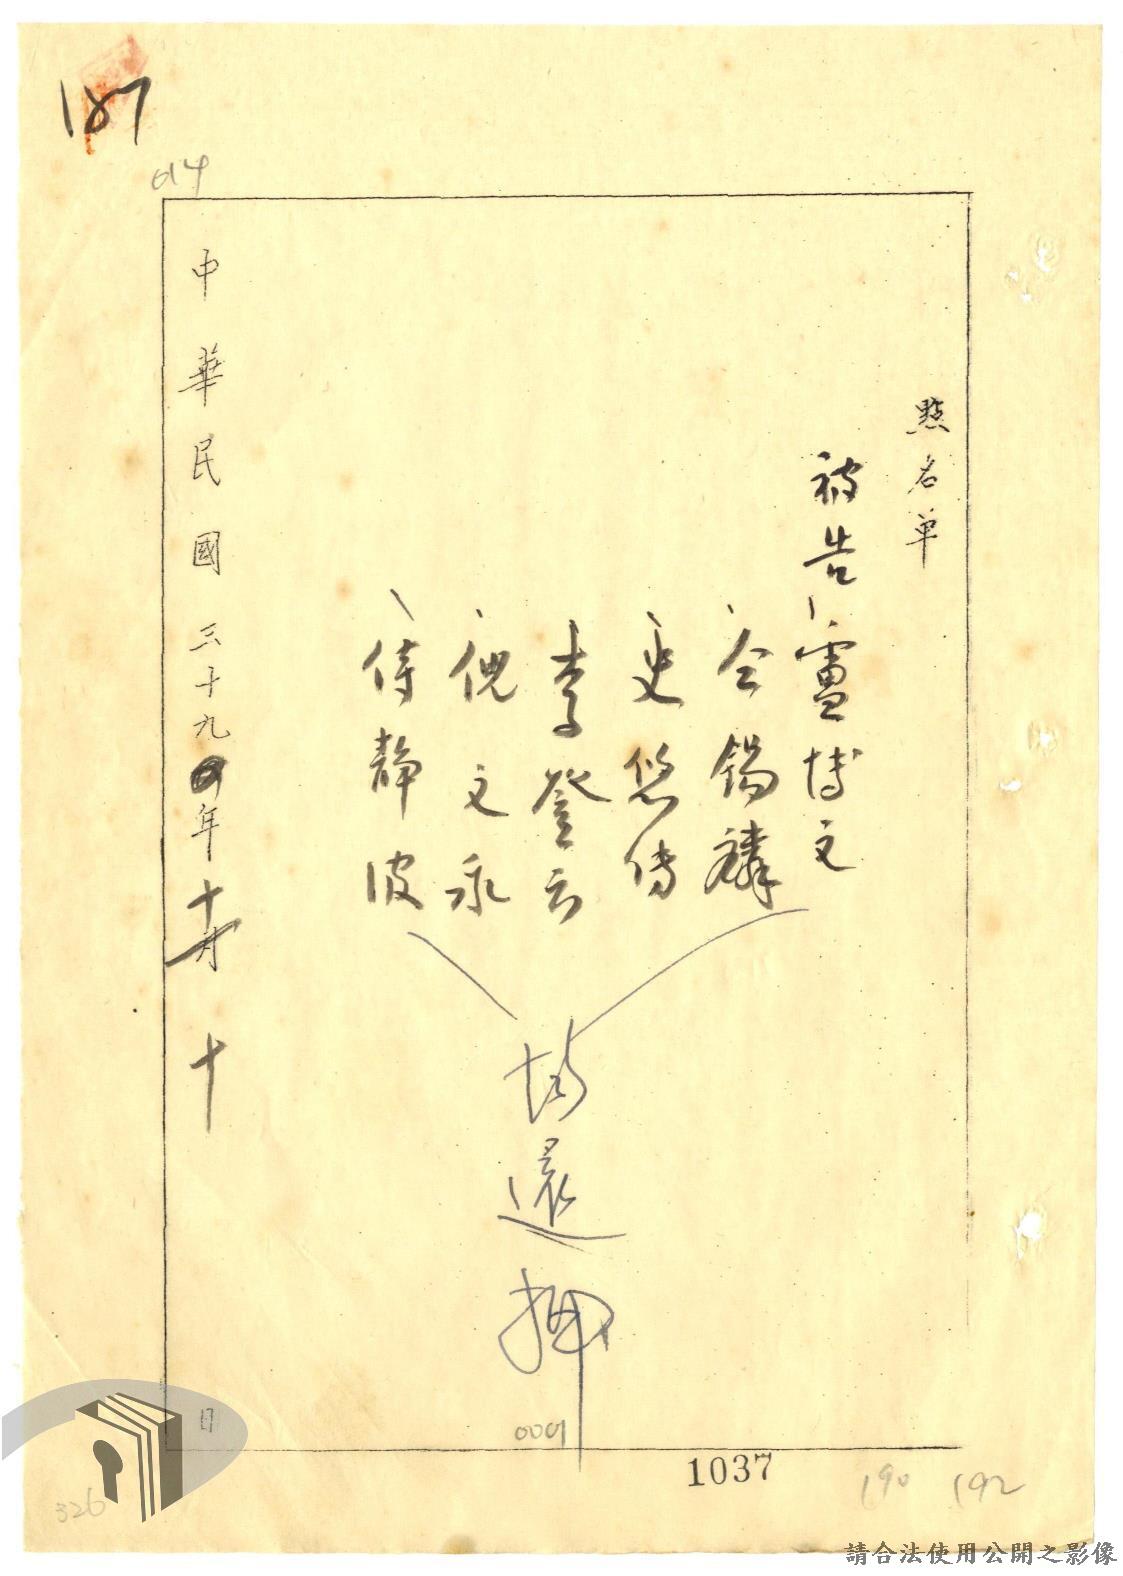 187
614
點名單
被告 盧博文
仝錫麟
史悠傳
李登云
倪文永
侍靜波
均還押
中華民國三十九年十月十日
0001
1037
190 192
326
請合法使用公開之影像